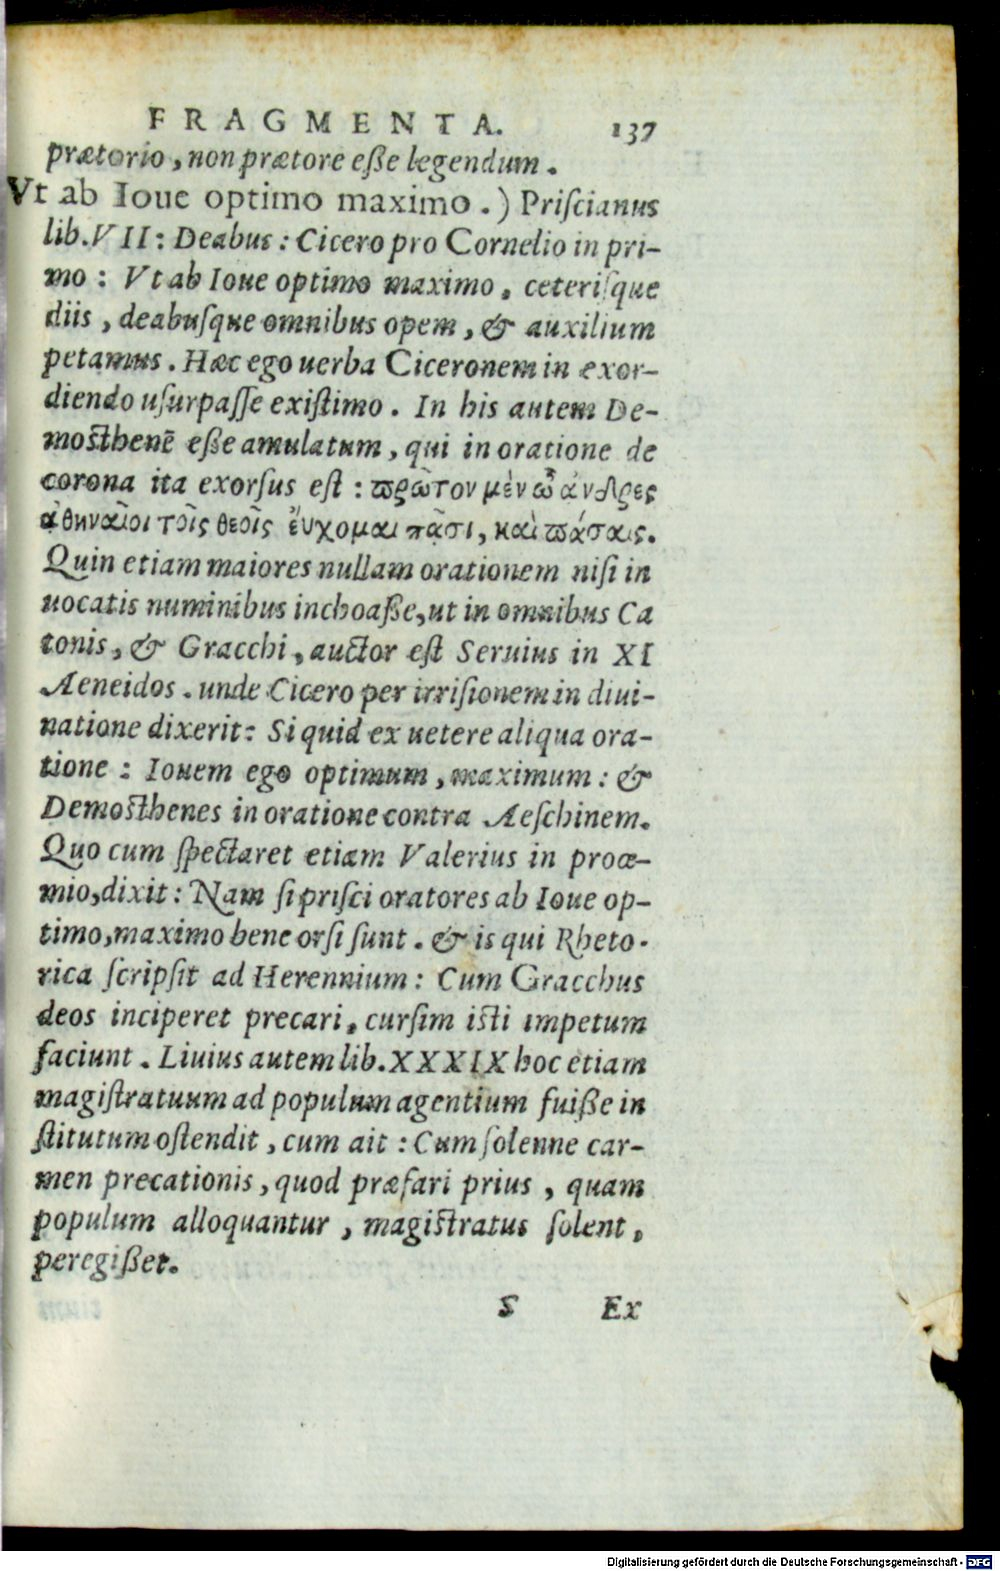 FRAGMENTA. 137
prætorio, non prætore eße legendum.
Vt ab Ioue optimo maximo.) Priſcianus
lib.VII: Deabus: Cicero pro Cornelio in pri-
mo: Vt ab Ioue optimo maximo, ceteriſque
diis, deabusſque omnibus opem, & auxilium
petamus. Hæc ego uerba Ciceronem in exor-
diendo uſurpaſſe exiſtimo. In his autem De-
mosthenē eße amulatum, qui in oratione de
corona ita exorſus eſt: πρῶτον μὲν ὦ ἄνδρες
ἀθηναῖοι τοῖς θεοῖς ἔυχομαι πᾶσι, καὶ πάσαις.
Quin etiam maiores nullam orationem niſi in
uocatis numinibus inchoaße, ut in omnibus Ca
tonis, & Gracchi, auctor eſt Seruius in XI
Aeneidos. unde Cicero per irriſionem in diui-
natione dixerit: Si quid ex uetere aliqua ora-
tione: Iouem ego optimum, maximum: &
Demosthenes in oratione contra Aeſchinem.
Quo cum ſpectaret etiam Valerius in proœ-
mio, dixit: Nam ſi priſci oratores ab Ioue op-
timo, maximo bene orſi ſunt. & is qui Rheto-
rica ſcripſit ad Herennium: Cum Gracchus
deos inciperet precari, curſim isti impetum
faciunt. Liuius autem lib.XXXIX hoc etiam
magiſtratuum ad populum agentium fuiße in
ſtitutum oſtendit, cum ait: Cum ſolenne car-
men precationis, quod præfari prius, quam
populum alloquantur, magistratus ſolent,
peregißet.
S Ex
Digitalisierung gefördert durch die Deutsche Forschungsgemeinschaft - DFG